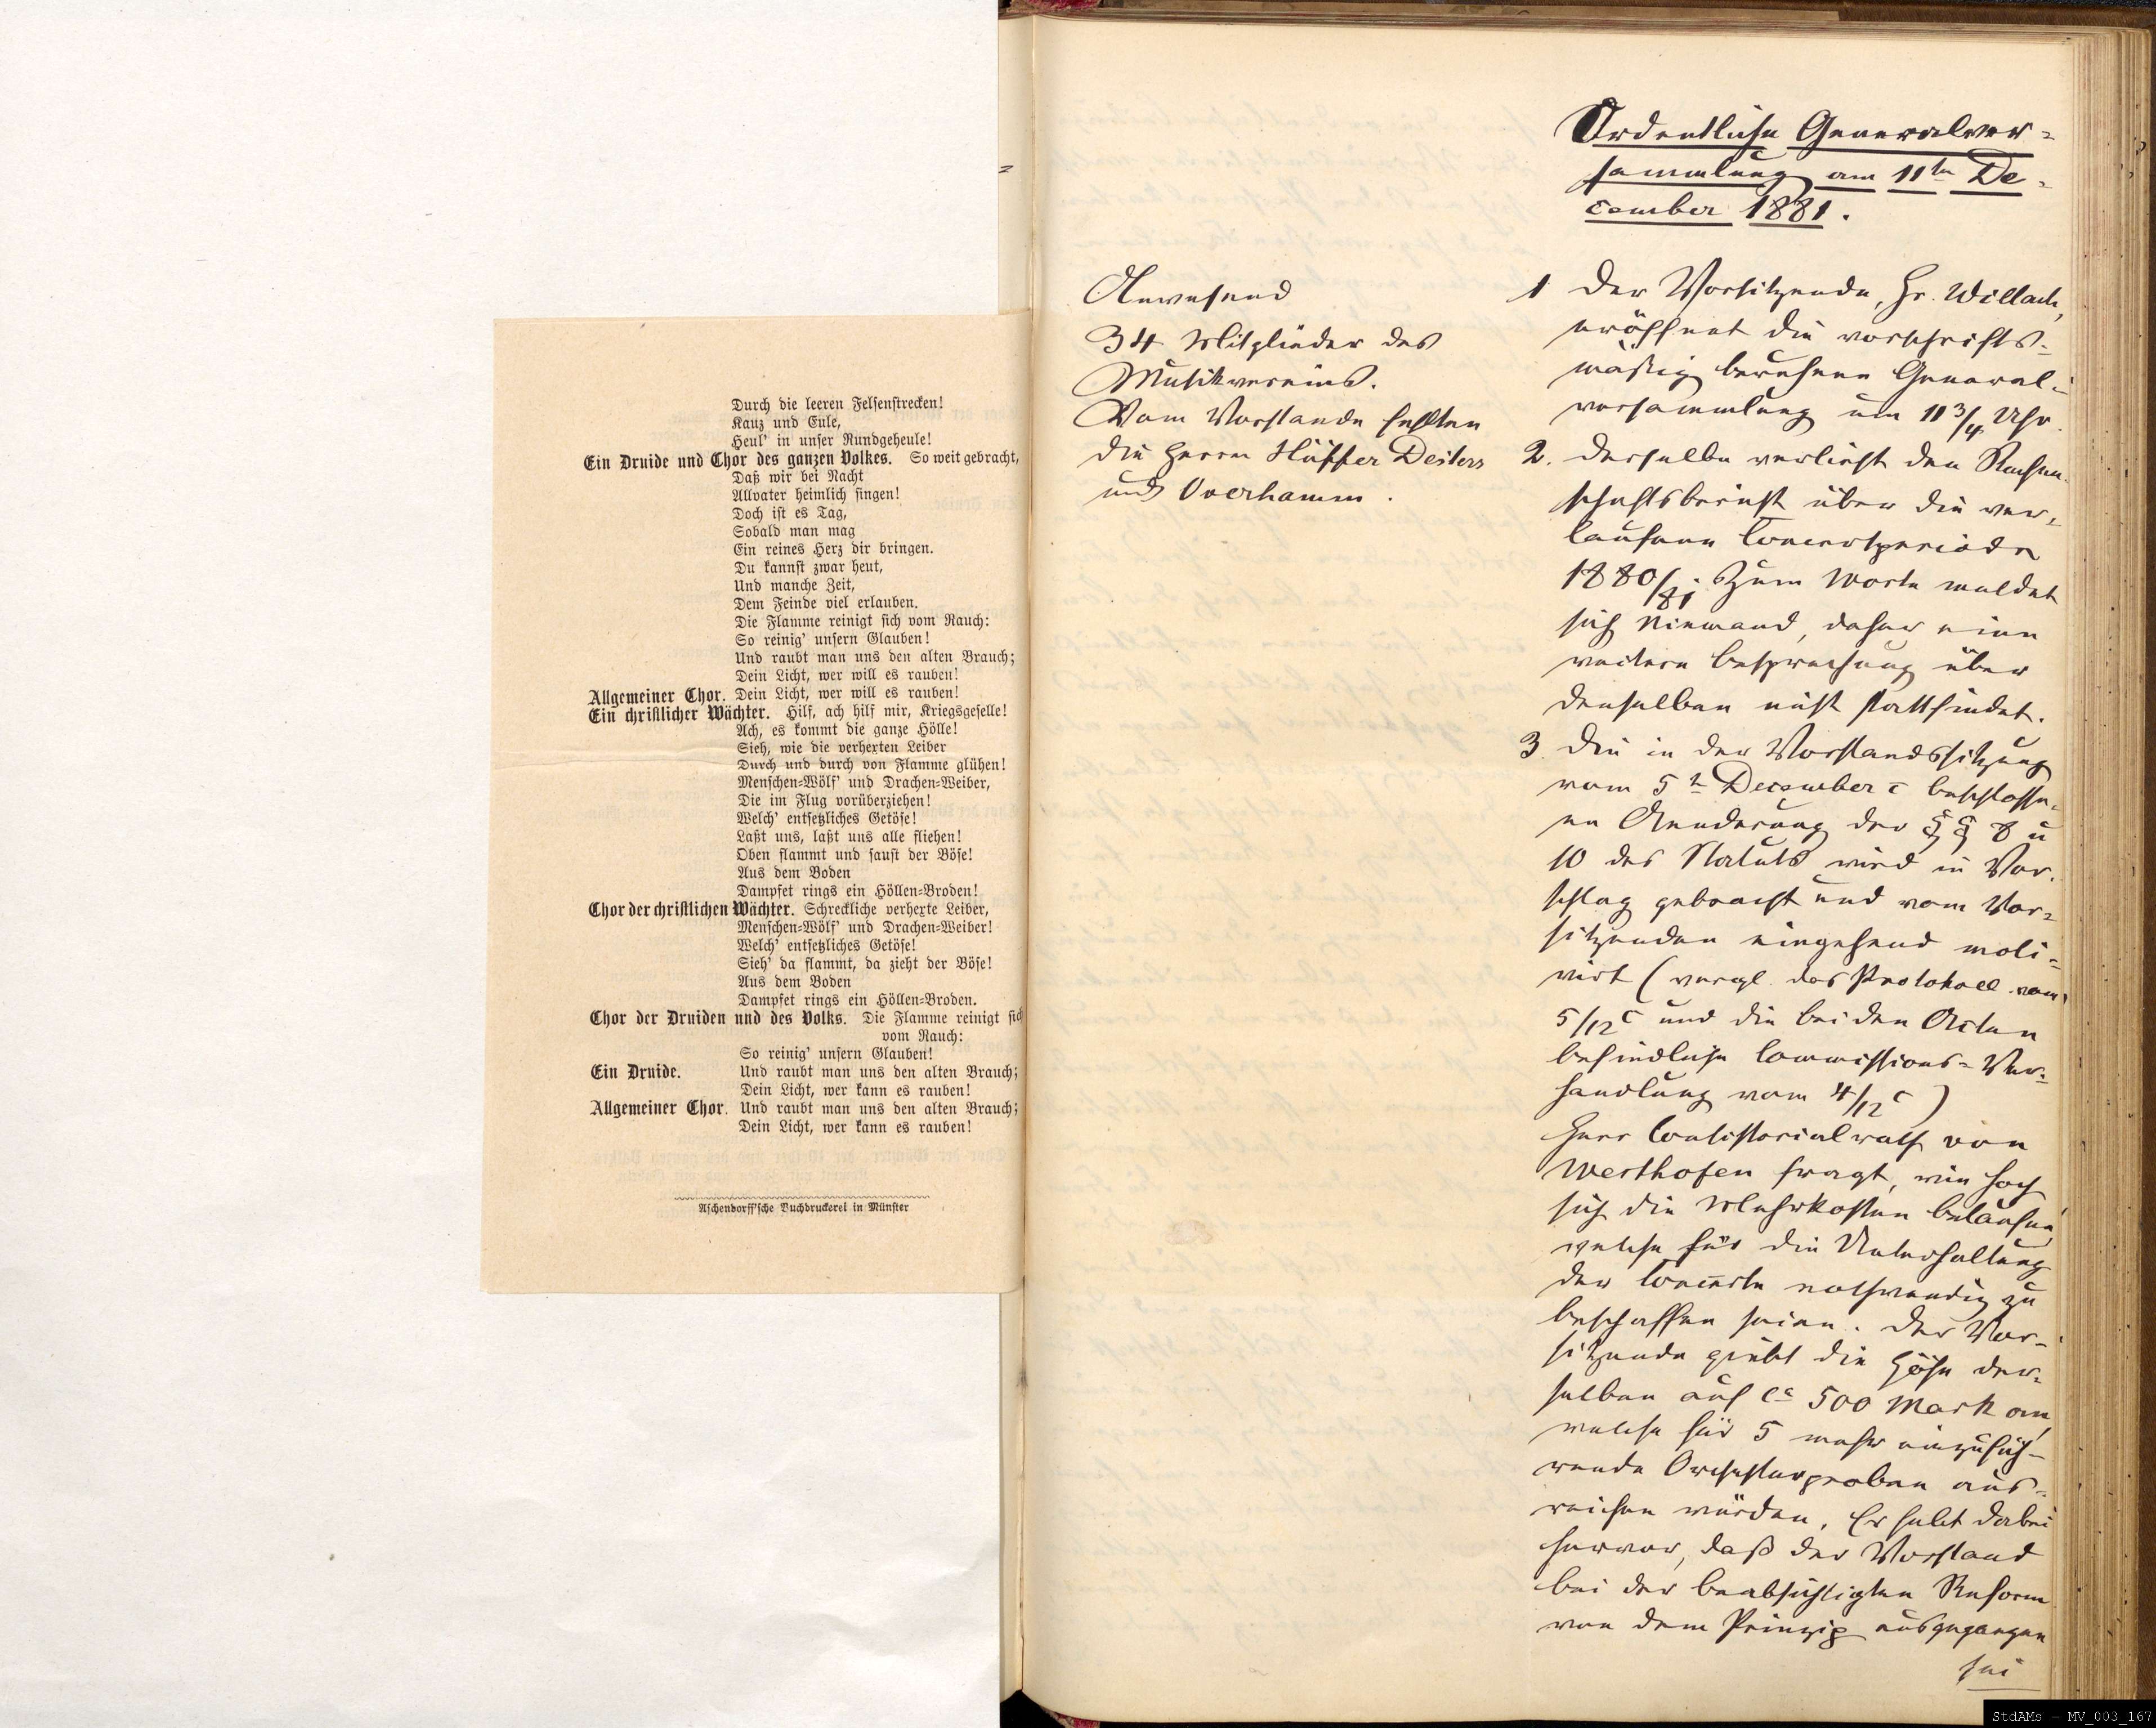 Durch die leeren Felsenstrecken!
Kauz und Eule,
Heul' in unser Rundgeheule!
Ein Druide und Chor des ganzen Volkes. So weit gebracht,
Daß wir bei Nacht
Allvater heimlich singen!
Doch ist es Tag,
Sobald man mag
Ein reines Herz dir bringen.
Du kannst zwar heut,
Und manche Zeit,
Dem Feinde viel erlauben.
Die Flamme reinigt sich vom Rauch:
So reinig' unsern Glauben!
Und raubt man uns den alten Brauch;
Dein Licht, wer will es rauben!
Allgemeiner Chor. Dein Licht, wer will es rauben!
Ein christlicher Wächter. Hilf, ach hilf mir, Kriegsgeselle!
Ach, es kommt die ganze Hölle!
Sieh, wie die verhexten Leiber
Durch und durch von Flamme glühen!
Menschen-Wölf' und Drachen-Weiber,
Die im Flug vorüberziehen!
Welch' entsetzliches Getöse!
Laßt uns, laßt uns alle fliehen!
Oben flammt und saust der Böse!
Aus dem Boden
Dampfet rings ein Höllen-Broden!
Chor der christlichen Wächter. Schreckliche verhexte Leiber,
Menschen-Wölf' und Drachen-Weiber!
Welch' entsetzliches Getöse!
Sieh' da flammt, da zieht der Böse!
Aus dem Boden
Dampfet rings ein Höllen-Broden.
Chor der Druiden und des Volks. Die Flamme reinigt sich
vom Rauch:
So reinig' unsern Glauben!
Ein Druide. Und raubt man uns den alten Brauch;
Dein Licht, wer kann es rauben!
Allgemeiner Chor. Und raubt man uns den alten Brauch;
Dein Licht, wer kann es rauben!
Aschendorff'sche Buchdruckerei in Münster
Anwesend
34 Mitglieder des
Musikvereins.
Vom Vorstande fehlten
die Herrn Hüffer Deiters
und Overhamm.
Ordentliche Generalver-
sammlung am 11ten De-
cember 1881.
1 Der Vorsitzende, Hr. Willach,
eröffnet die vorschrifts-
mäßig berufene General-
versammlung um 11 3/4 Uhr.
2. Derselbe verliest den Rechen-
schaftsbericht über die ver-
laufene Concertperiode
1880/81. Zum Worte meldet
sich Niemand, daher eine
weitere Besprechung über
denselben nicht stattfindet.
3. Die in der Vorstandssitzung
vom 5t December c beschlosse-
ne Aenderung der §§ 8 u
10 des Statuts wird in Vor-
schlag gebracht und vom Vor-
sitzenden eingehend moti-
virt (vergl. das Protokoll vom
5/12 c und die bei den Acten
befindliche Commissions-Ver-
handlung vom 4/12 c)
Herr Consistorialrath von
Westhofen fragt, wie hoch
sich die Mehrkosten belaufen,
welche für die Unterhaltung
der Concerte nothwendig zu
beschaffen seien. Der Vor-
sitzende giebt die Höhe der-
selben auf ca 500 Mark an,
welche für 5 mehr einzufüh-
rende Orchesterproben aus-
reichen würden. Er hebt dabei
hervor, daß der Vorstand
bei der beabsichtigten Reform
von dem Prinzip ausgegangen
sei
StdAMs - MV_003_167